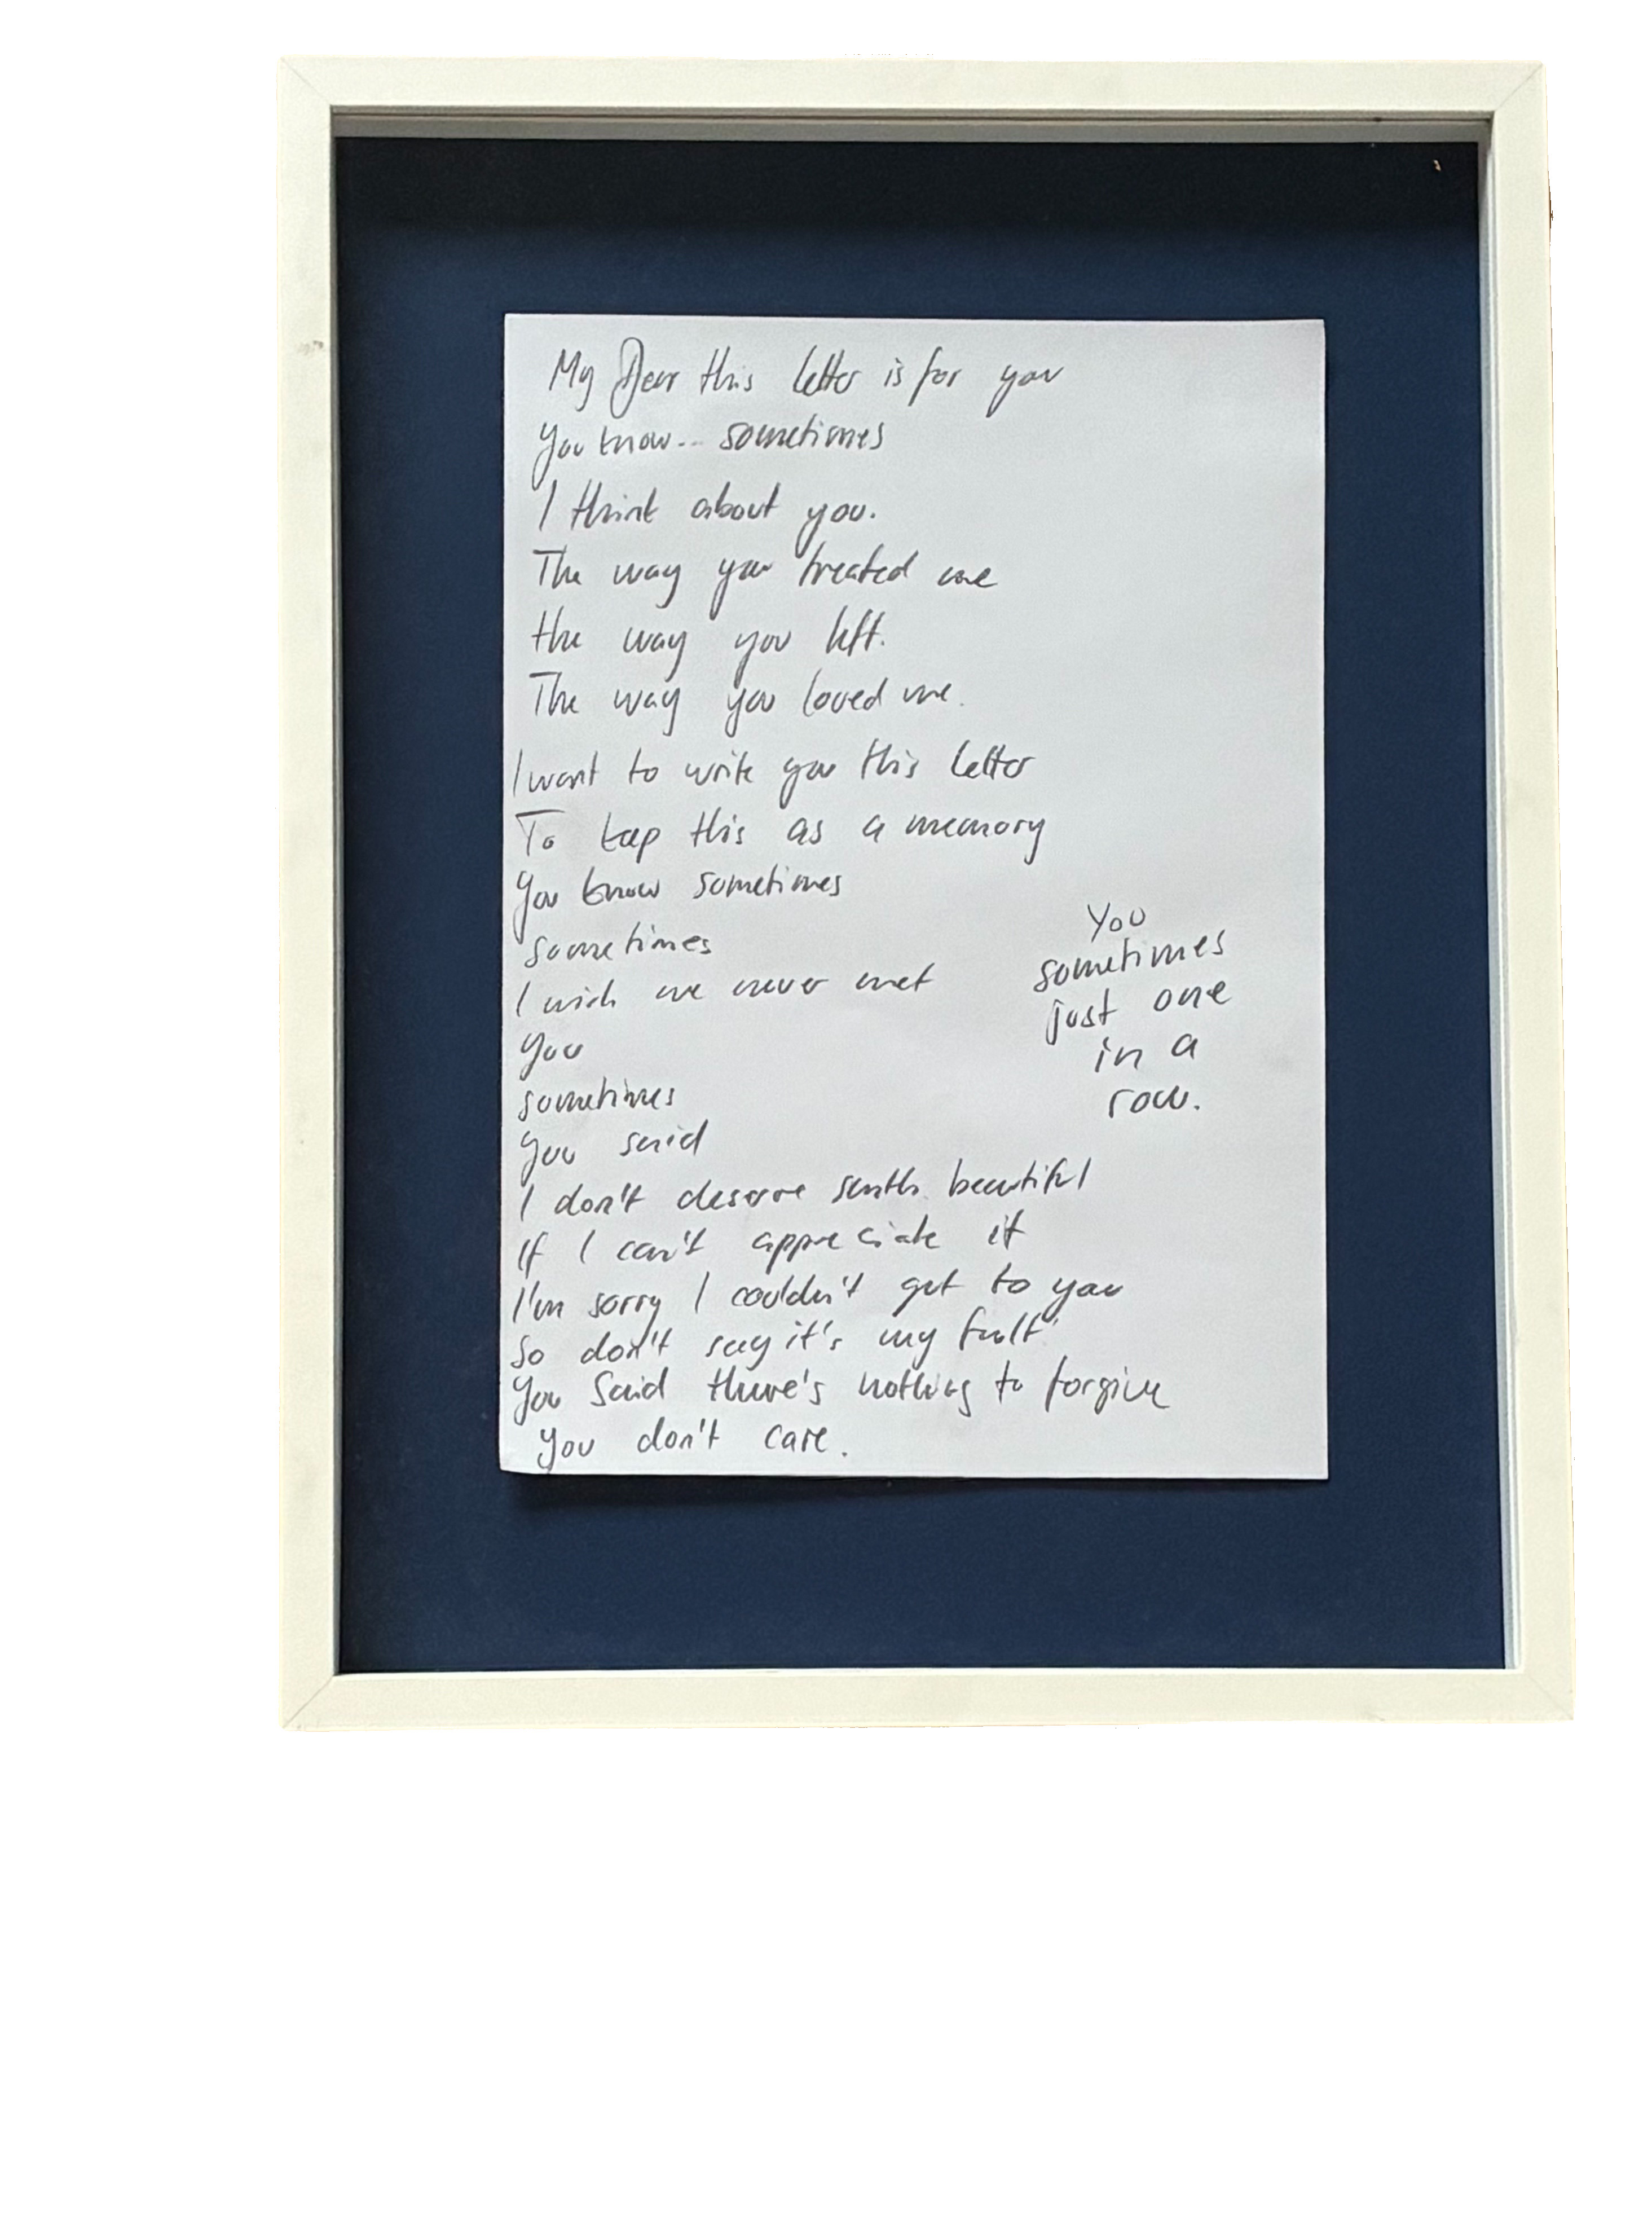 My Dear this letter is for you
You know... sometimes
I think about you.
The way you treated me
the way you left.
The way you loved me.
I want to write you this letter
To keep this as a memory
You know sometimes
sometimes
I wish we never met
you
sometimes
you said
I don't deserve smth. beautiful
If I can't appreciate it
I'm sorry I couldn't get to you
So don't say it's my fault
You said there's nothing to forgive
you don't care.
You
sometimes
just one
in a
row.